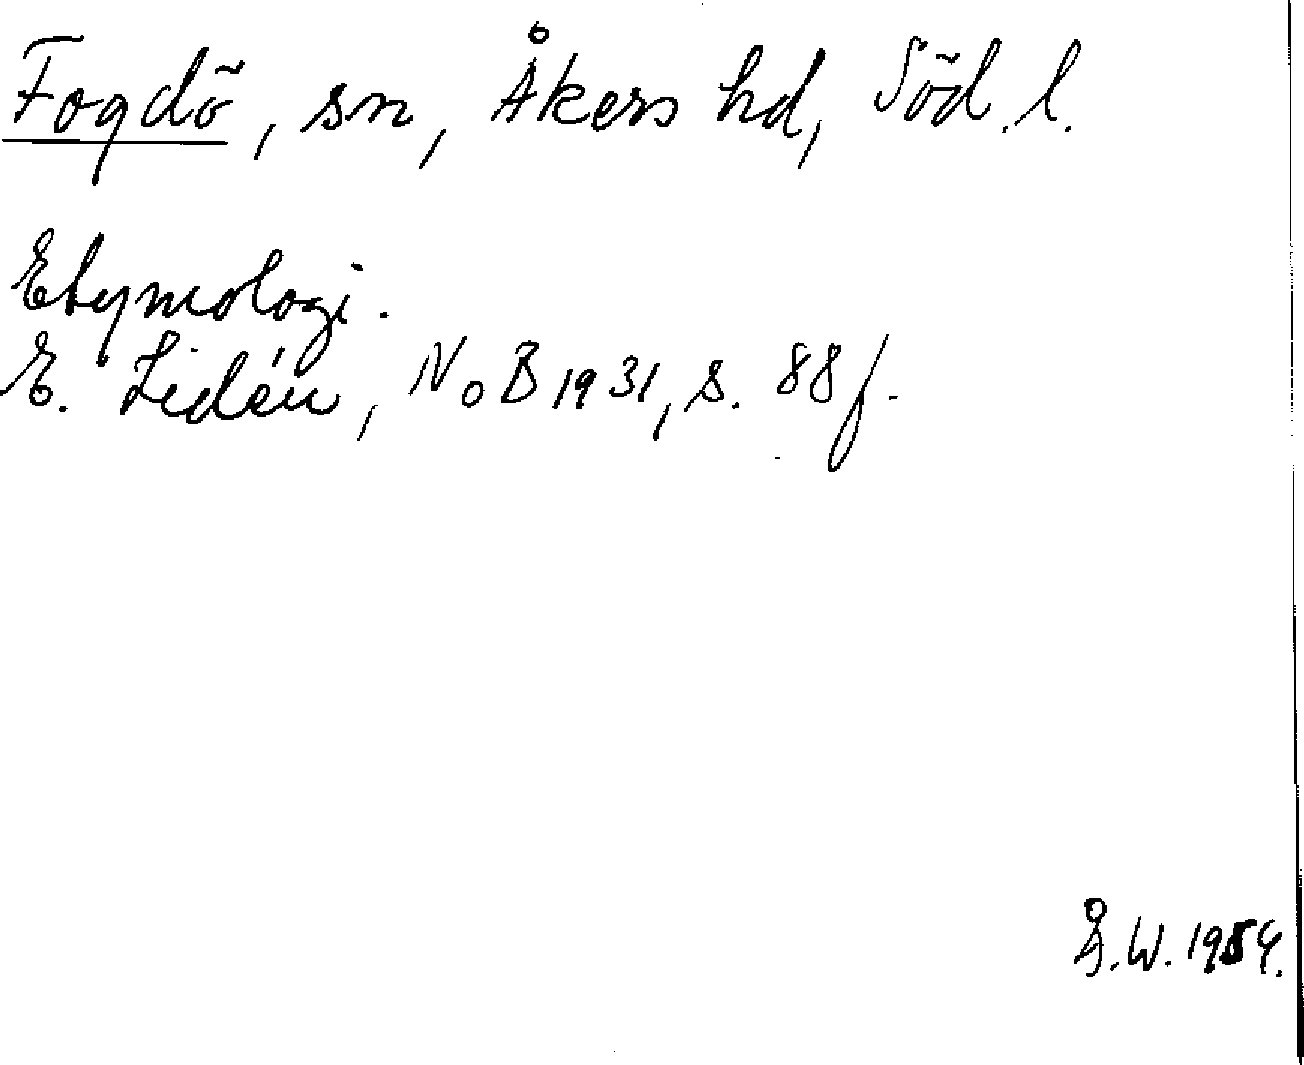 Fogdö, sn, Åkers hd, Söd. l.
Etymologi.
E. Lidén, NoB 1931, s. 88 f.
Å.W. 1954.